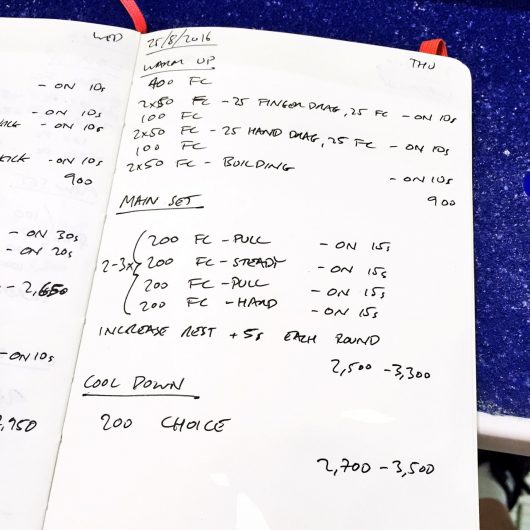 WED
- ON 10s
- ON 10s
KICK - ON 10s
KICK - ON 10s
900
- ON 30s
- ON 20s
- 2,650
- ON 10s
25/8/2016
THU
WARM UP
400 FC
2x50 FC - 25 FINGER DRAG, 25 FC - ON 10s
100 FC
2x50 FC - 25 HAND DRAG, 25 FC - ON 10s
100 FC
2x50 FC - BUILDING - ON 10s
900
MAIN SET
200 FC - PULL - ON 15s
2-3x 200 FC - STEADY - ON 15s
200 FC - PULL - ON 15s
200 FC - HARD - ON 15s
INCREASE REST +5s EACH ROUND
2,500 - 3,300
COOL DOWN
200 CHOICE
2,700 - 3,500